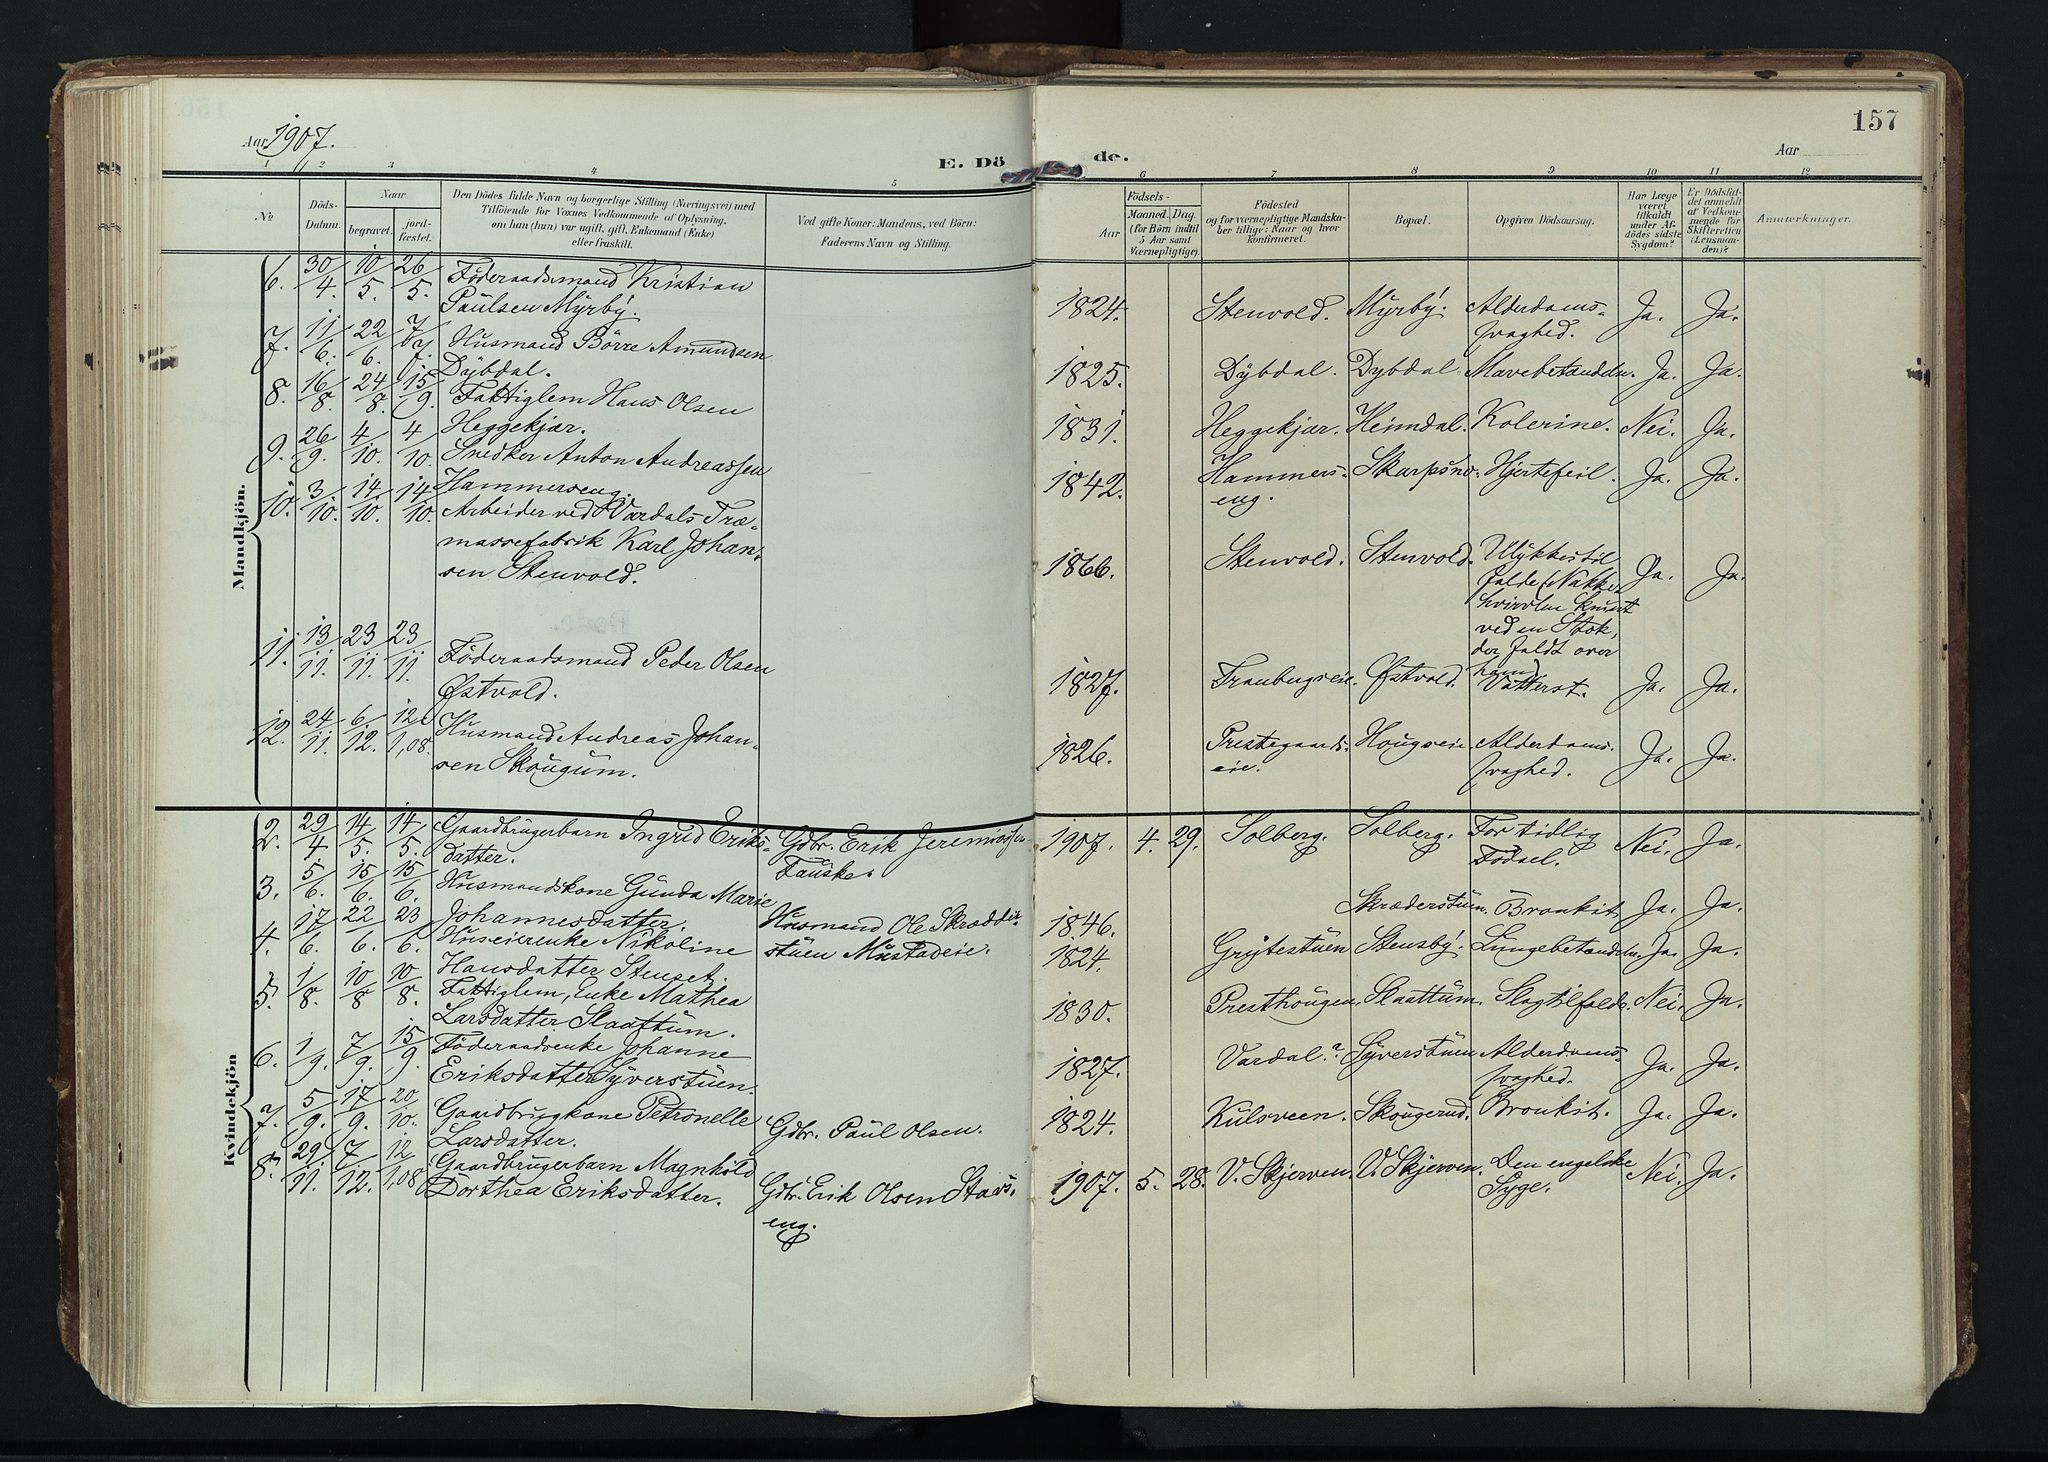 157
Aar 1907.
E. Dö de.
Aar
1 2 3 4 5 6 7 8 9 10 11 12
№
Döds-
Datum.
Naar
begravet.
jord-
fæstet.
Den Dödes fulde Navn og borgerlige Stilling (Næringsvei) med
Tilföiende for Voxnes Vedkommende af Oplysning,
om han (hun) var ugift, gift, Enkemand (Enke)
eller fraskilt.
Ved gifte Koner: Mandens, ved Börn:
Faderens Navn og Stilling.
Födsels-
Aar
Maaned. Dag.
(for Börn indtil
5 Aar samt
Værnepligtige).
Födested
og for værnepligtige Mandska-
ber tillige: Naar og hvor
konfirmeret.
Bopæl.
Opgiven Dödsaarsag.
Har Læge
været
tilkaldt
under Af-
dödes sidste
Sygdom?
Er Dödsfal-
det anmeldt
af Vedkom-
mende for
Skifteretten
(Lensman-
den)?
Anmærkninger.
Mandkjön.
6. 30/4. 10/5. 26/5. Föderaadsmand Kristian
Paulsen Myrby. 1824. Stenvold. Myrby. Alderdoms-
svaghed. Ja. Ja.
7. 11/6. 22/6. 7/7. Husmand Börre Amundsen
Dybdal. 1825. Dybdal. Dybdal. Mavebetændelse. Ja. Ja.
8. 16/8. 24/8. 15/9. Fattiglem Hans Olsen
Heggekjær. 1831. Heggekjær. Heimdal. Kolerine. Nei. Ja.
9. 26/9. 4/10. 4/10. Snedker Anton Andreassen
Hammerseng. 1842. Hammers-
eng. Skarpsno. Hjertefeil. Ja. Ja.
10. 3/10. 14/10. 14/10. Arbeider ved Vardals Træ-
massefabrik Karl Johan-
sen Stenvold. 1866. Stenvold. Stenvold. Ulykkestil
fælde (Nakke
hvirvlen knust
ved en Stok,
der faldt over
ham). Ja. Ja.
11. 13/11. 23/11. 23/11. Föderaadsmand Peder Olsen
Østvold. 1827. Tranbergseie. Østvold. Vattersot. Ja. Ja.
12. 24/11. 6/12. 12/1,08. Husmand Andreas Johan-
sen Skougum. 1826. Prestegaards-
eie. Hougseie Alderdoms-
svaghed. Ja. Ja.
Kvindekjön
2. 29/4 14/5. 14/5. Gaardbrugerbarn Ingrid Eriks-
datter. Gdbr. Erik Jeremiassen
Fauske. 1907. 4. 29. Solberg. Solberg. For tidlig
Födsel. Nei. Ja.
3. 5/6. 15/6. 15/6. Husmandskone Gunda Marie
Johannesdatter. Husmand Ole Skrædder-
stuen Mustadeie. 1846. Skræderstuen. Bronkit. Ja. Ja.
4. 17/6. 22/6. 23/6. Huseierenke Nikoline
Hansdatter Stenset. 1824. Grytestuen Stensby. Lungebetændelse. Ja. Ja.
5. 1/8. 10/8 10/8. Fattiglem, Enke Mathea
Larsdatter Slaattum. 1830. Presthougen. Slaattum. Slagtilfælde. Nei. Ja.
6. 1/9. 7/9. 15/9. Föderaadsenke Johanne
Eriksdatter Syverstuen. 1827. Vardal? Syverstuen Alderdoms-
svaghed. Ja. Ja.
7. 5/9. 17/9. 20/10. Gaardbrugkone Petronelle
Larsdatter. Gdbr. Paul Olsen. 1824. Kulsveen. Skougerud. Bronkit. Ja. Ja.
8. 29/11. 7/12. 12/1,08 Gaardbrugerbarn Magnhild
Dorthea Eriksdatter. Gdbr. Erik Olsen Stavs-
eng. 1907. 5. 28. V. Skjerven. V. Skjerven. Den engelske
Syge. Nei. Ja.